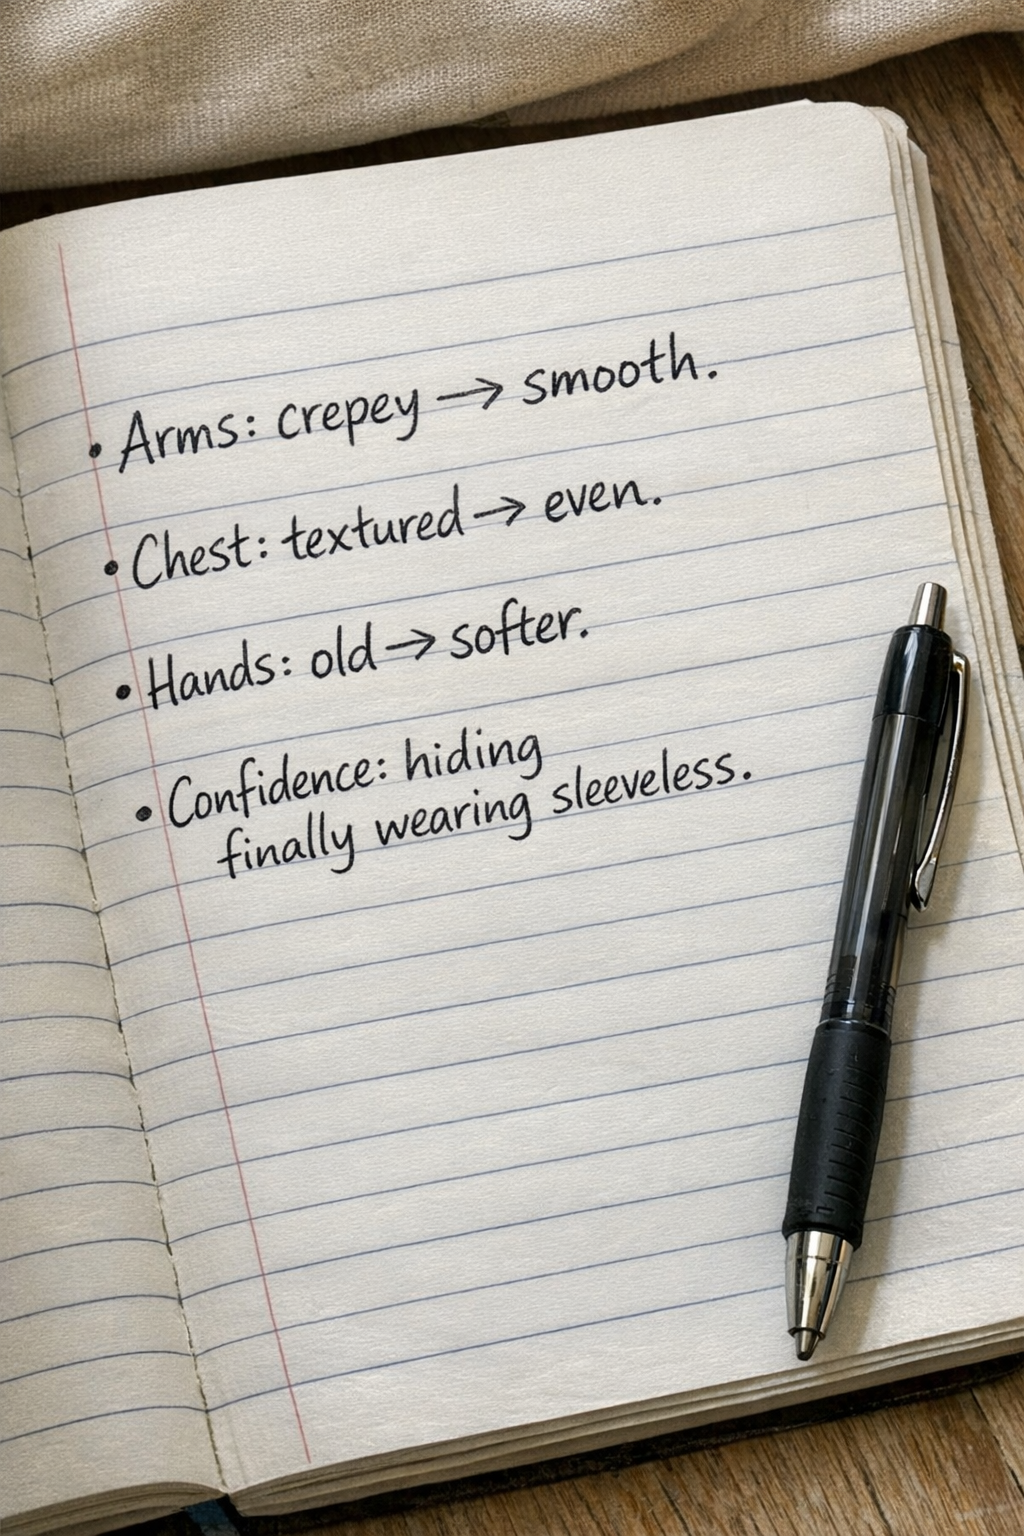 • Arms: crepey → smooth.
• Chest: textured → even.
• Hands: old → softer.
• Confidence: hiding
finally wearing sleeveless.